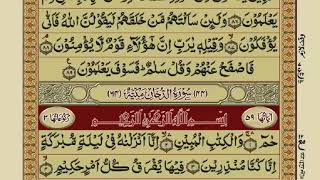 يَعْلَمُوْنَ ﴿۸۶﴾ وَلَئِنْ سَاَلْتَهُمْ مَّنْ خَلَقَهُمْ لَيَقُوْلُنَّ اللّٰهُ فَاَنّٰى
يُؤْفَكُوْنَ ﴿۸۷﴾ وَقِيْلِهٖ يٰرَبِّ اِنَّ هٰٓؤُلَآءِ قَوْمٌ لَّا يُؤْمِنُوْنَ ﴿۸۸﴾
فَاصْفَحْ عَنْهُمْ وَقُلْ سَلٰمٌ ؕ فَسَوْفَ يَعْلَمُوْنَ ﴿۸۹﴾
(۴۴) سُوْرَةُ الدُّخَانِ مَكِّيَّةٌ (۶۴)
اٰيَاتُهَا ۵۹ بِسْمِ اللّٰهِ الرَّحْمٰنِ الرَّحِيْمِ رُكُوْعَاتُهَا ۳
حٰمٓ ﴿۱﴾ وَالْكِتٰبِ الْمُبِيْنِ ﴿۲﴾ اِنَّآ اَنْزَلْنٰهُ فِيْ لَيْلَةٍ مُّبٰرَكَةٍ
اِنَّا كُنَّا مُنْذِرِيْنَ ﴿۳﴾ فِيْهَا يُفْرَقُ كُلُّ اَمْرٍ حَكِيْمٍ ﴿۴﴾